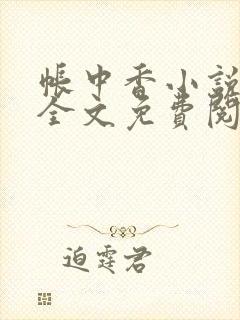 帳中香小說
全文免費閱
迫霆君